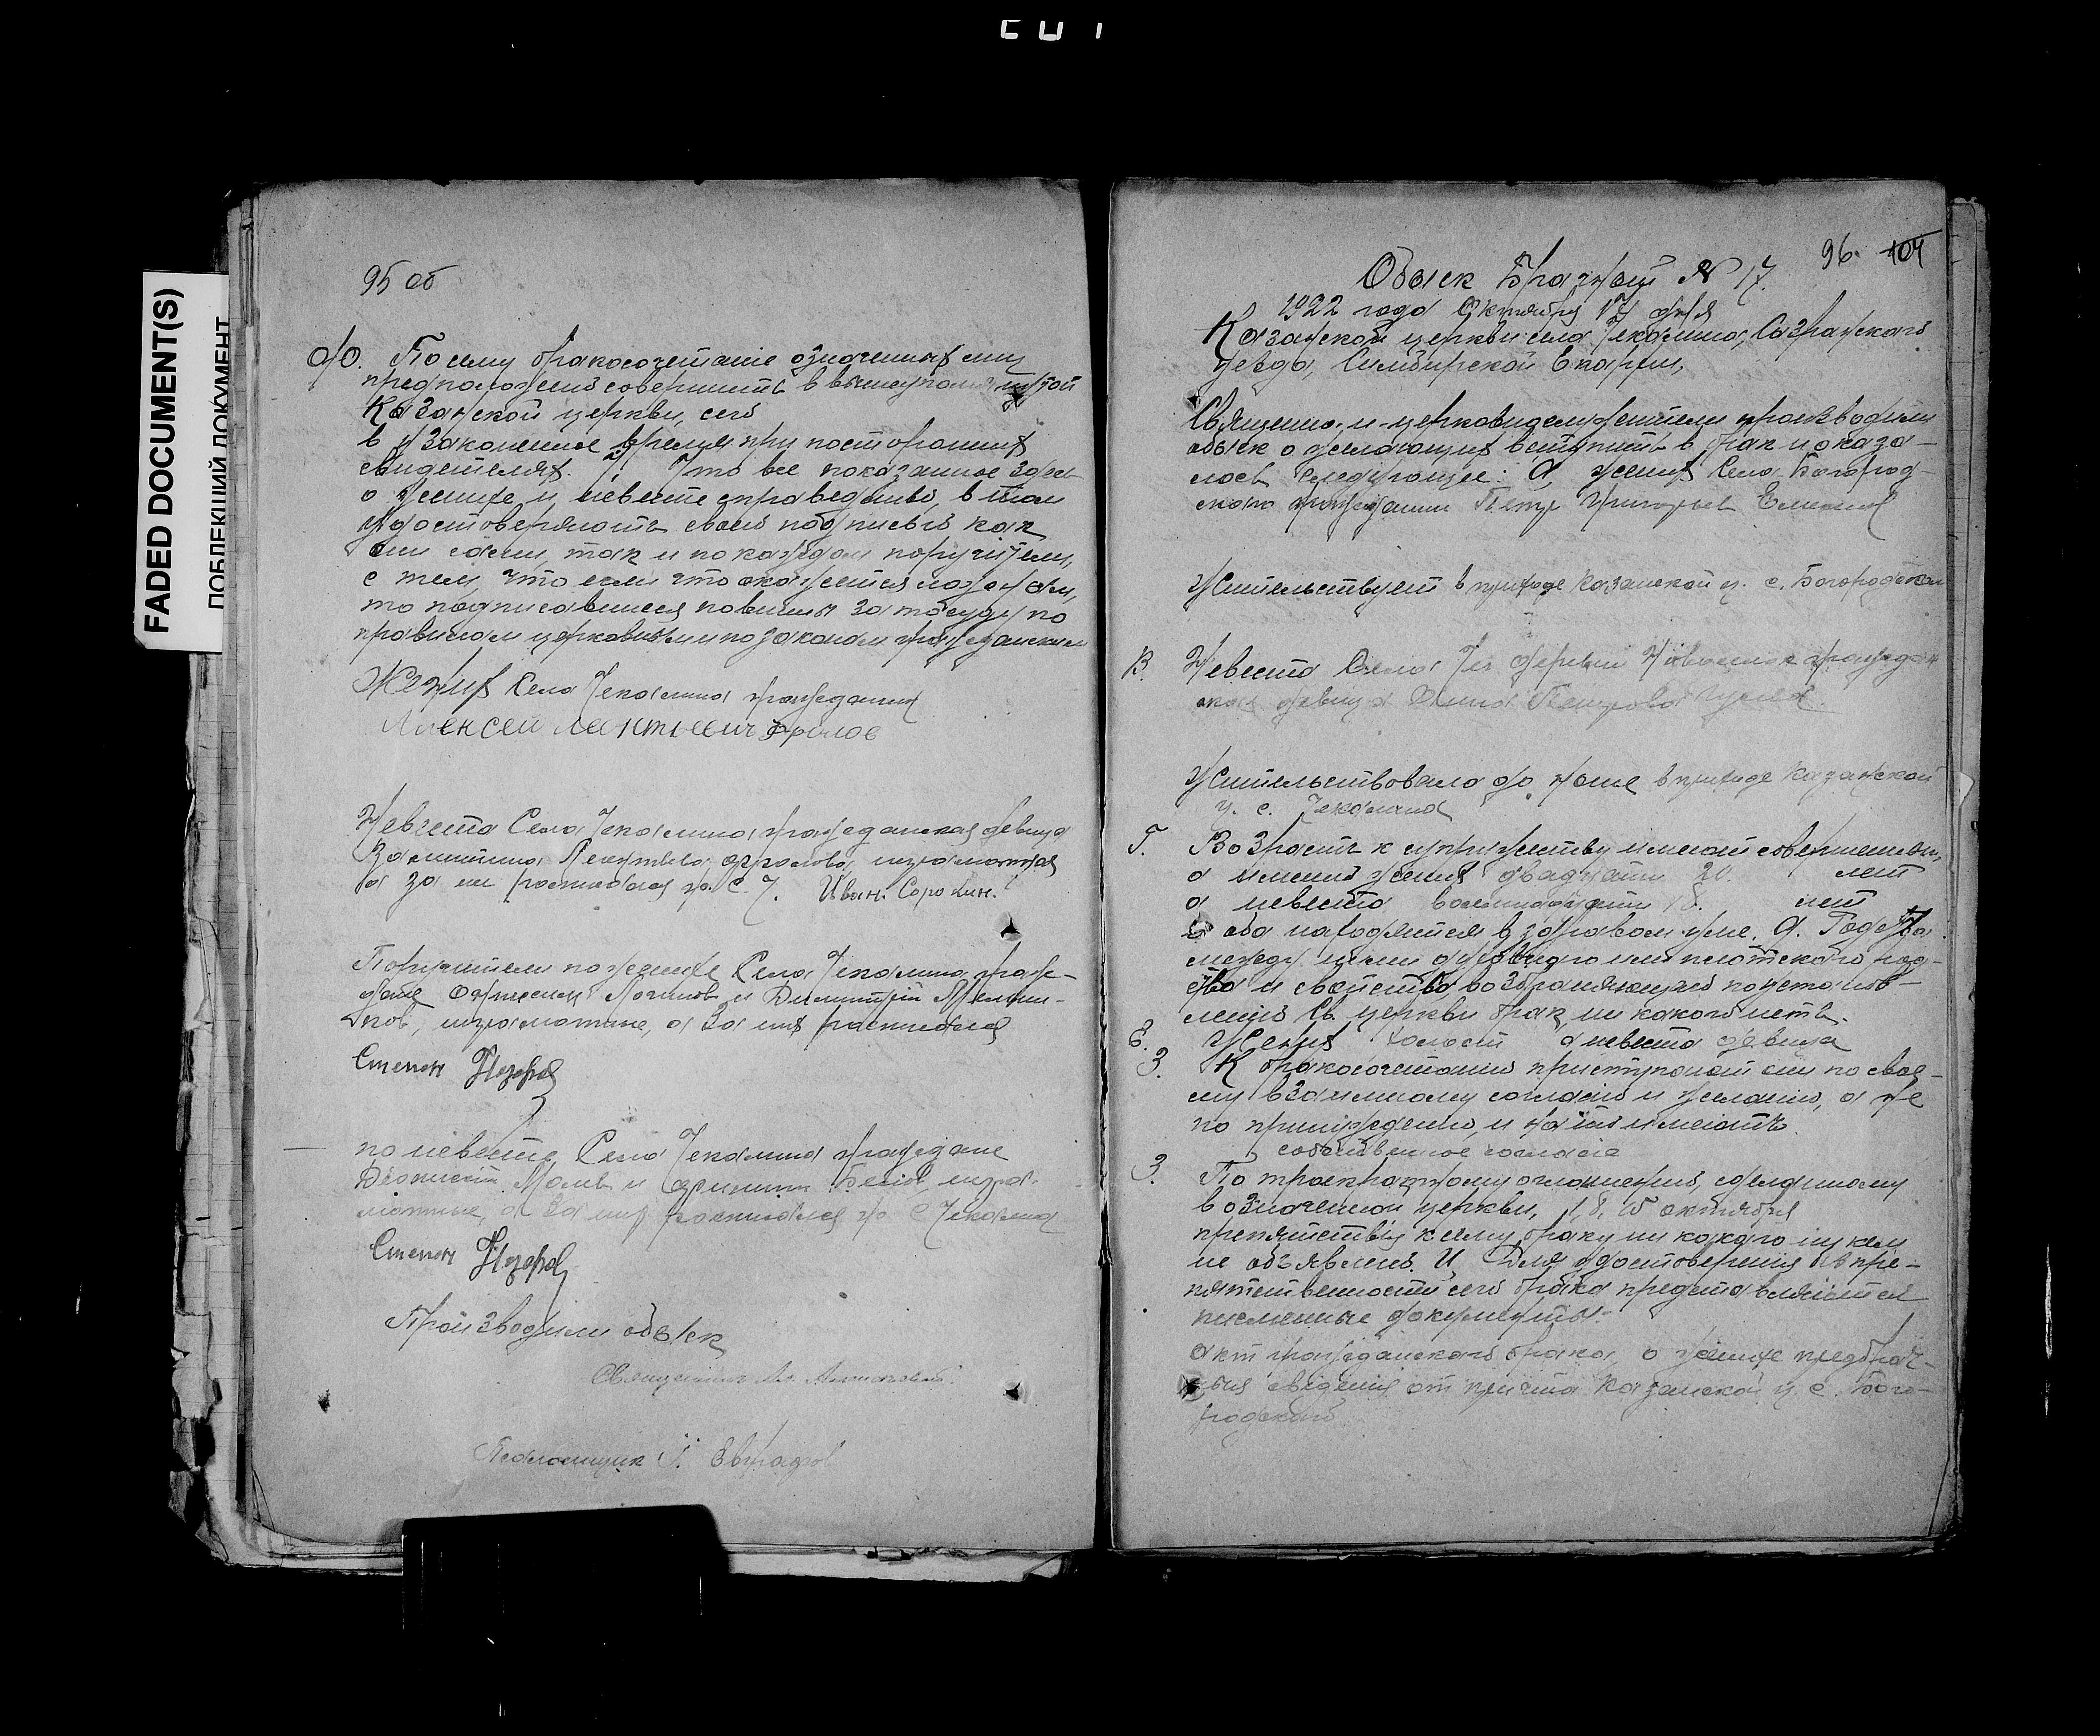 FADED DOCUMENT(S)
ПОБЛЕКШИЙ ДОКУМЕНТ
95 об
Ю. По сему бракосочетание означенных лиц
предположено совершить в вышеупомянутой
Казанской церкви, сего
в узаконенное время при посторонних
свидетелях. Что все показанное здесь
о женихе и невесте справедливо, в том
удостоверяють своею подписью как
они сами, так и по каждом поручители,
с тем, что если что окажется ложным,
то подписавшиеся повинны за то суду по
правилам церковным и по законам гражданским
Жених Села Чекалина гражданин
Алексей Леонтьевич Фролов
Невеста Села Чекалина гражданская девица
неграмотная
а за ня расписался гр. С. Ч. Иван. Сорокин.
Поручители по женихе Села Чекалина граж-
дане Логинов и Димитрий
неграмотные, а за них расписался
Степан Назаров
по невесте Села Чекалина граждане
и неграм-
мотные, а за них расписался гр. С Чекалина
Степан Назаров
Производили обыск
Священник
Псаломщик
96. 104
Обыск Брачный № 17.
1922 года Октября 17 дня
Казанской церкви села Чекалина, Сызранского
уезда, Симбирской Епархии,
Священно и церковнослужители производили
обыск о желающих вступить в брак и оказа-
лось следующее: А, жених Села Богород-
скаго гражданин Петр Григорьев
Жительствует в приходе Казанской ц. с. Богородскаго
В. Невеста Села Чек. деревни граждан
ская девица Анна Петрова
Жительствовала до ныне в приходе Казанской
ц. с. Чекалина
Г. Возраст к супружеству имеют совершенный,
а именно жених двадцати 20. лет
а невеста восемнадцати 18. лет
и оба находятся в здравом уме. Д. Родства
между ними духовнаго или плотскаго род-
ства и свойства, возбраняющаго по установ-
лению Св. церкви брак, ни какого нетъ.
Е. Жених холост а невеста девица
З. К бракосочетанию приступают они по свое-
му взаимному согласию и желанию, а не
по принуждению, и на то имеютъ
собственное согласие
З. По троекратному оглашению, сделанному
в означенной церкви, 1, 8, 15 октября
препятствия к сему браку ни какого ни кем
не объявлено. И, Для удостоверения безпре-
пятственности сего брака представляются
письменные документы:
акт гражданскаго брака, о женихе предбрач-
ныя сведения от причта Казанской ц. с. Бого-
родскаго